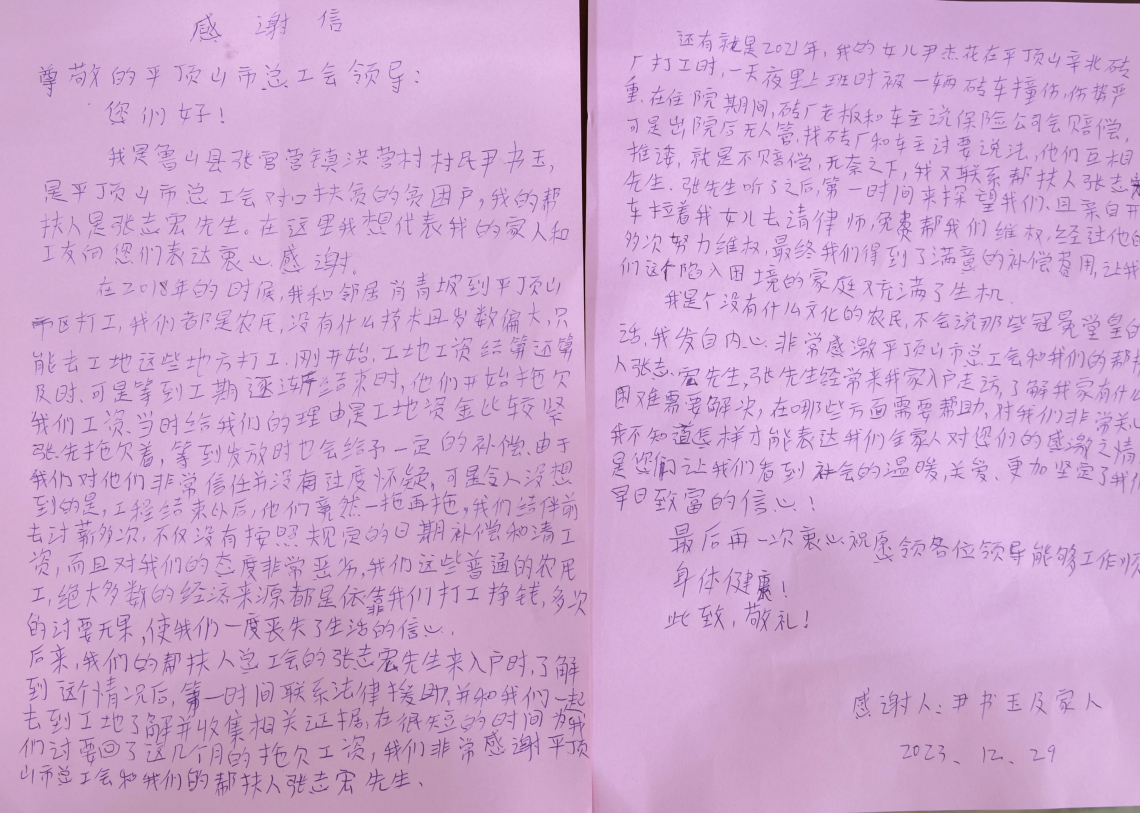 感 谢 信
尊敬的平顶山市总工会领导：
您们好！
我是鲁山县张官营镇洪营村村民尹书玉，
是平顶山市总工会对口扶贫的贫困户，我的帮
扶人是张志宏先生。在这里我想代表我的家人和
工友向您们表达衷心感谢。
在2018年的时候，我和邻居肖青坡到平顶山
市区打工，我们都是农民，没有什么技术且岁数偏大，只
能去工地这些地方打工.刚开始，工地工资结算还算
及时、可是等到工期逐渐结束时，他们开始拖欠
我们工资、当时给我们的理由是工地资金比较紧
张先拖欠着，等到发放时也会给予一定的补偿、由于
我们对他们非常信任并没有过度怀疑，可是令人没想
到的是，工程结束以后，他们竟然一拖再拖，我们结伴前
去讨薪多次，不仅没有按照规定的日期补偿和清工
资，而且对我们的态度非常恶劣，我们这些普通的农民
工，绝大多数的经济来源都是依靠我们打工挣钱，多次
的讨要无果，使我们一度丧失了生活的信心.
后来，我们的帮扶人总工会的张志宏先生来入户时，了解
到这个情况后，第一时间联系法律援助，并和我们一起
去到工地了解并收集相关证据，在很短的时间为我
们讨要回了这几个月的拖欠工资，我们非常感谢平顶
山市总工会和我们的帮扶人张志宏先生、
还有就是2021年，我的女儿尹杰花在平顶山辛北砖
厂打工时，一天夜里上班时被一辆砖车撞伤，伤势严
重.在住院期间，砖厂老板和车主说保险公司会赔偿，
可是出院后无人管，找砖厂和车主讨要说法，他们互相
推诿，就是不赔偿，无奈之下，我又联系帮扶人张志宏
先生.张先生听了之后，第一时间来探望我们、且亲自开
车拉着我女儿去请律师，免费帮我们维权，经过他的
多次努力维权，最终我们得到了满意的补偿费用，让我
们这个陷入困境的家庭又充满了生机.
我是个没有什么文化的农民，不会说那些冠冕堂皇的
话，我发自内心非常感激平顶山市总工会和我们的帮扶
人张志宏先生，张先生经常来我家入户走访，了解我家有什么
困难需要解决，在哪些方面需要帮助，对我们非常关心
我不知道怎样才能表达我们全家人对您们的感激之情
是您们让我们看到社会的温暖，关爱、更加坚定了我们
早日致富的信心！
最后再一次衷心祝愿领各位领导能够工作顺
身体健康！
此致，敬礼！
感谢人：尹书玉及家人
2023、12、29